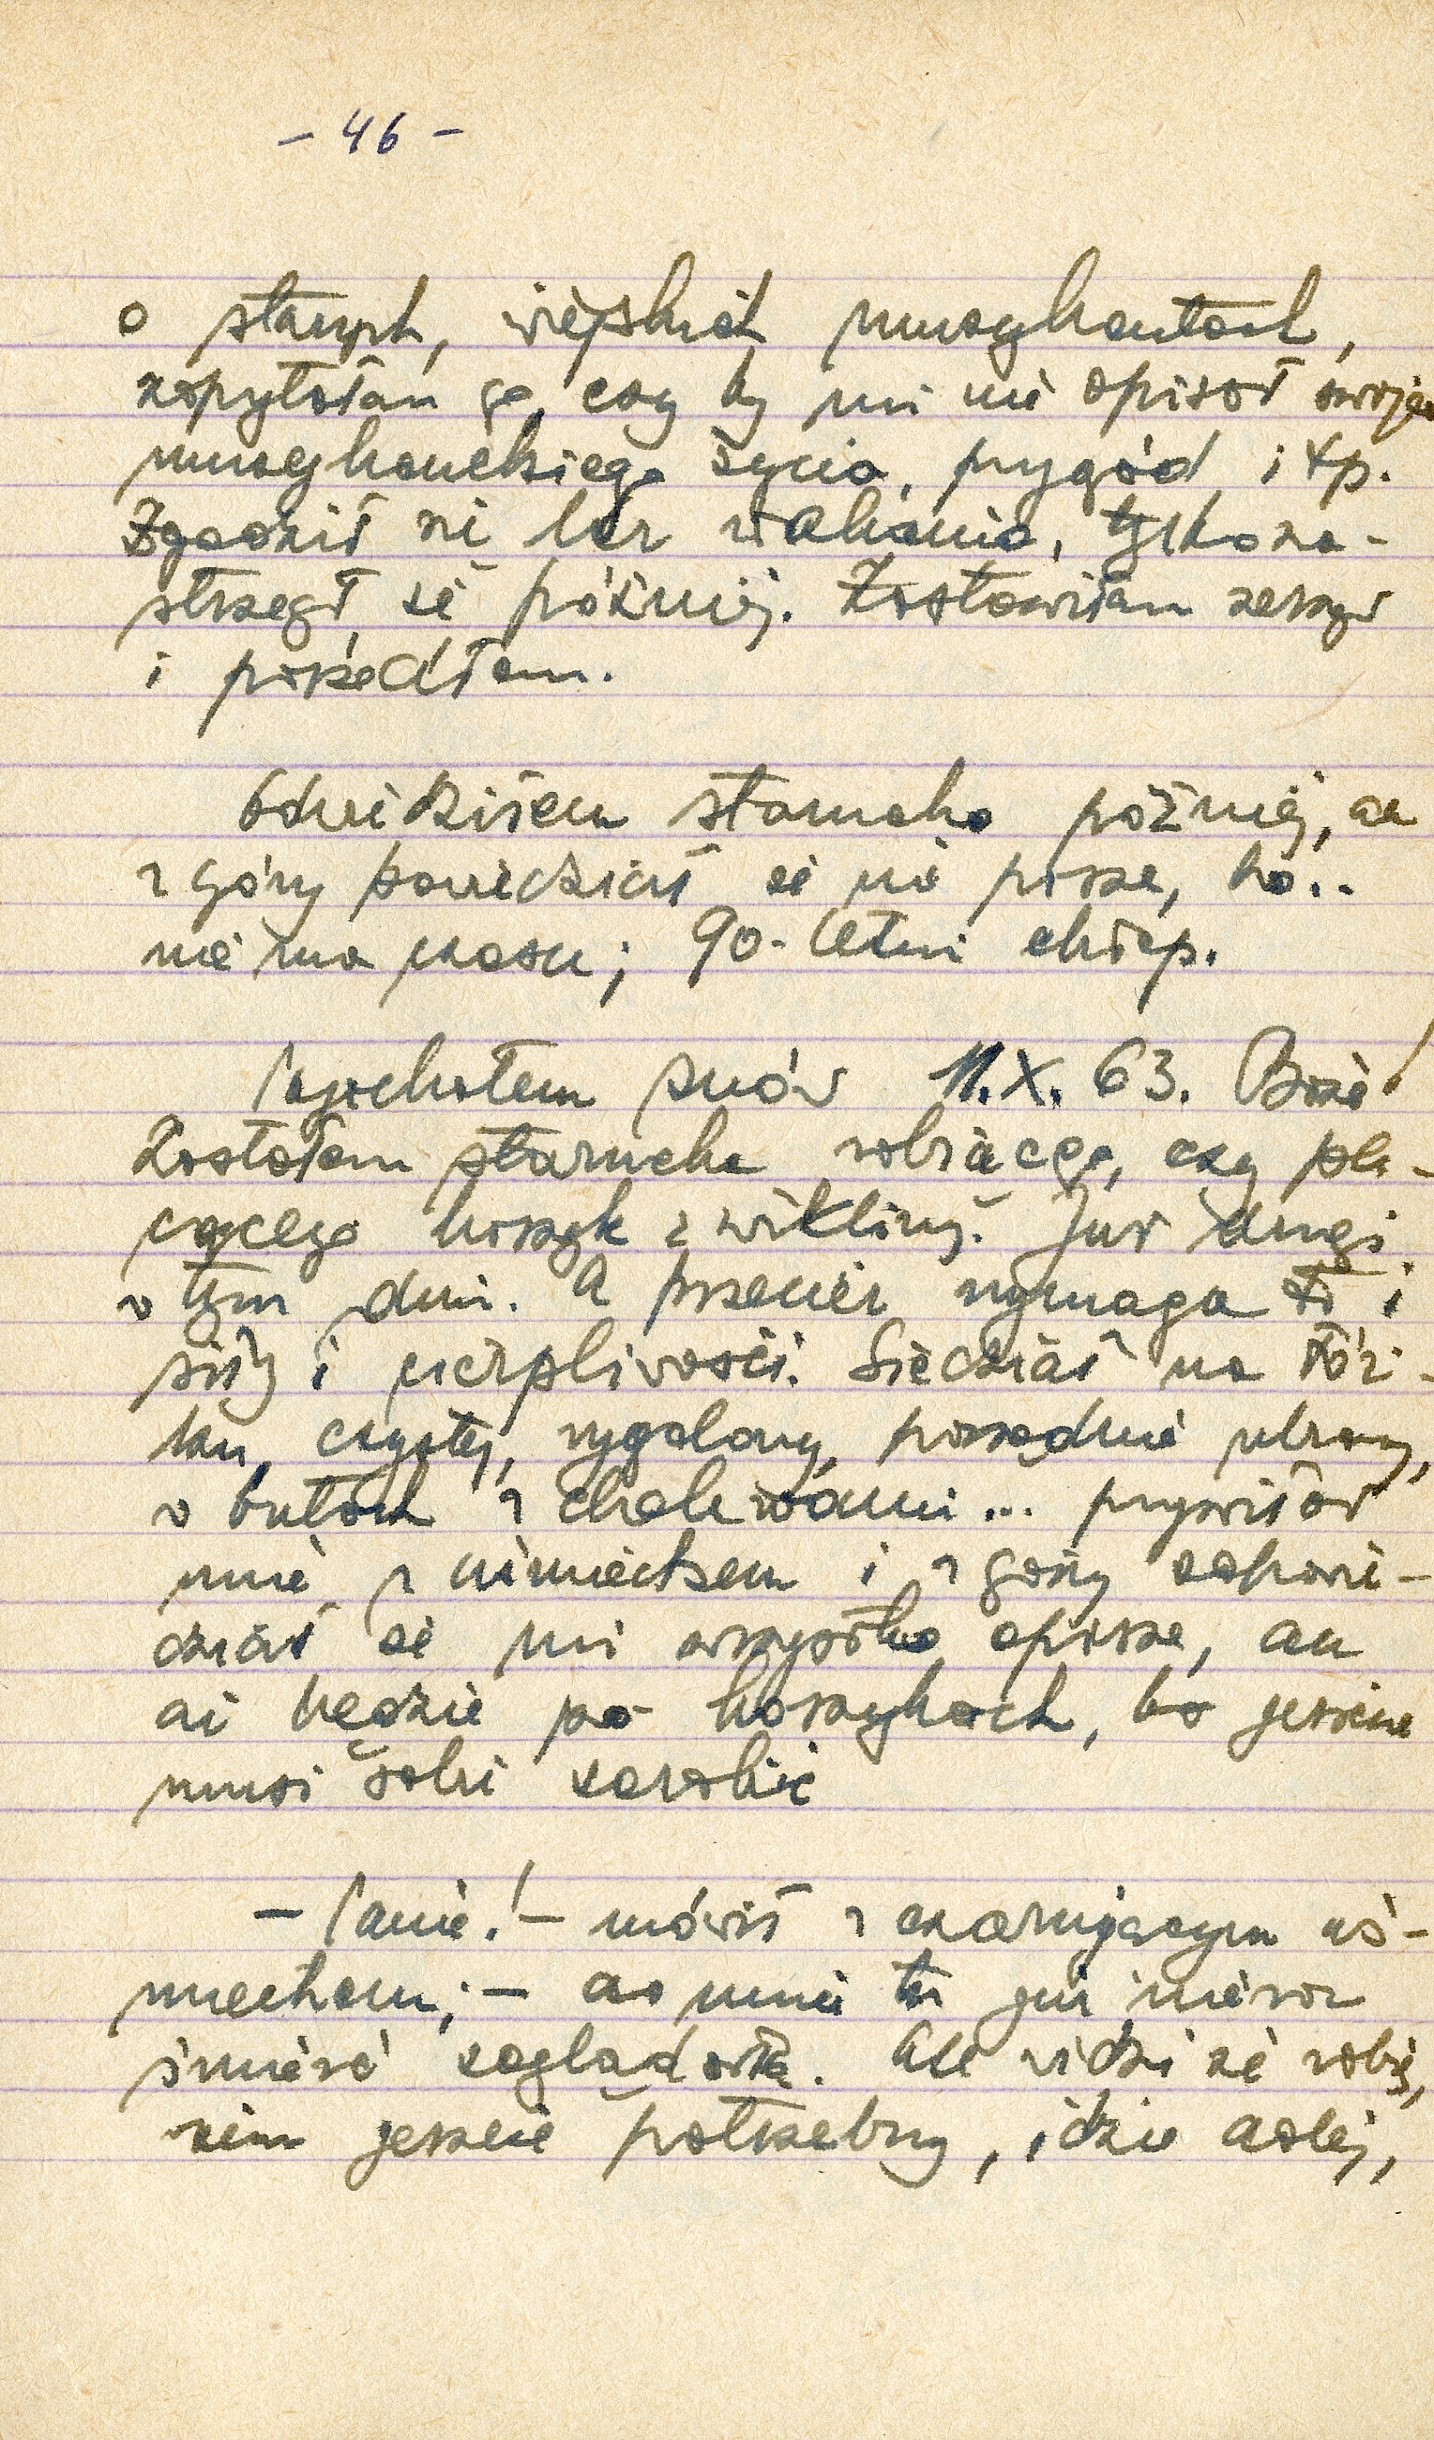 - 46 -
o starych, wiejskich muzykantach,
zapytałem go, czy by mi nie opisał swojego
muzykanckiego życia, przygód i tp.
Zgodził się bez wahania, tylko za-
strzegł, że później. Zostawiłem zeszyt
i poszedłem.
Odwidziłem starucha później, ale
z góry powiedział że nie pisze, bo..
nie ma czasu; 90-letni chłop.
Pojechałem znów 11.X.63. Boże!
Zastałem starucha robiącego, czy ple-
cącego koszyk z wikliny. Już drugi
w tym dniu. A przecież wymaga to i
siły i cierpliwości. Siedział na łóż-
ku, czysty, wygolony, porządnie ubrany,
w butach z cholewami... przywitał
mnie z uśmiechem i z góry zapowie-
dział że mi wszystko opisze, ale
aż będzie po koszykach, bo jeszcze
musi sobie zarobić
- Panie! - mówił z czarującym uś-
miechem; - do mnie to już nieraz
śmierć zaglądała. Ale widzi że robię,
żem jeszcze potrzebny, idzie dalej,